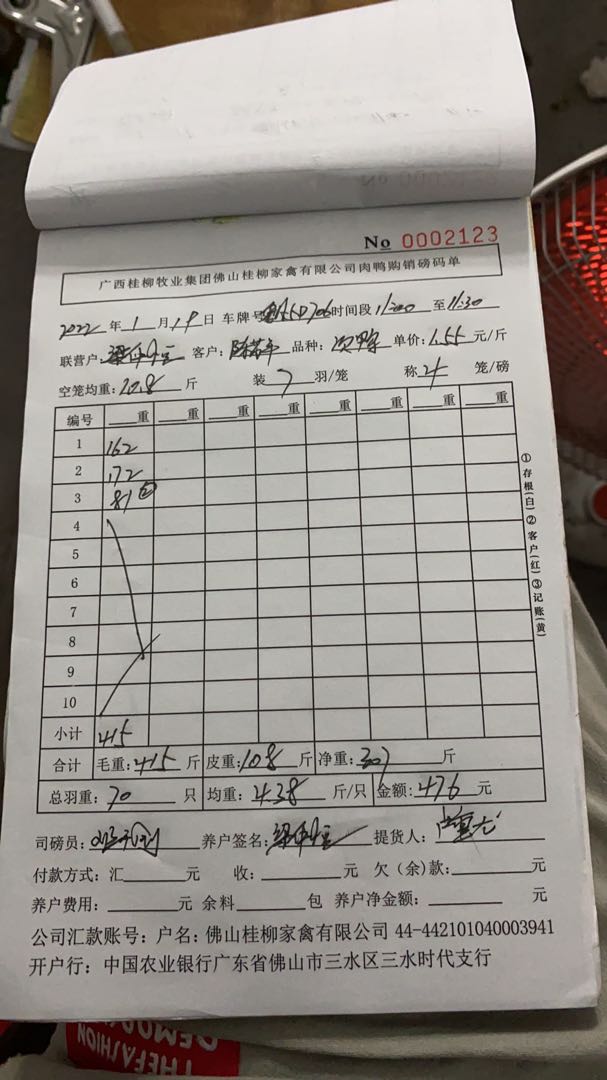 No 0002123
广西桂柳牧业集团佛山桂柳家禽有限公司肉鸭购销磅码单
2022 年 1 月 19 日 车牌号 时间段 11:00 至 11:30
联营户: 客户: 品种: 单价: 1.55 元/斤
空笼均重: 10.8 斤 装 7 羽/笼 称 4 笼/磅
编号 重 重 重 重 重 重 重 重
1 162
2 172
3 81 ②
4
5
6
7
8
9
10
小计 415
合计 毛重: 415 斤 皮重: 108 斤 净重: 307 斤
总羽重: 70 只 均重: 4.38 斤/只 金额: 476 元
司磅员: 养户签名: 提货人:
付款方式: 汇 元 收: 元 欠(余)款: 元
养户费用: 元 余料 包 养户净金额: 元
公司汇款账号: 户名: 佛山桂柳家禽有限公司 44-442101040003941
开户行: 中国农业银行广东省佛山市三水区三水时代支行
①存根(白)②客户(红)③记账(黄)
THEFASHION